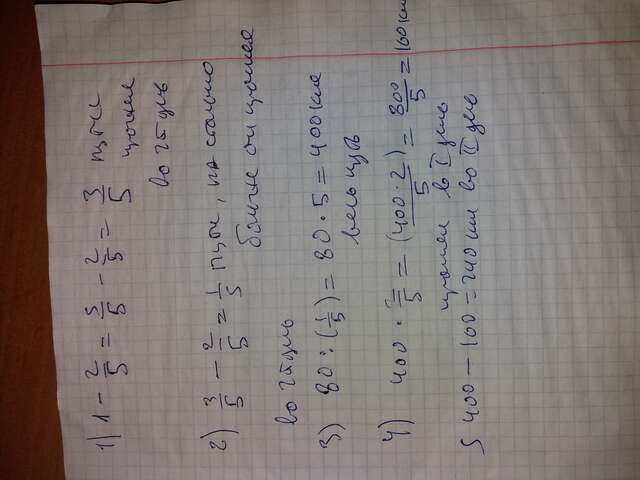 1) 1 - 2/5 = 5/5 - 2/5 = 3/5 пути
прошел
во 2й день
2) 3/5 - 2/5 = 1/5 пути, на столько
больше он прошел
во 2й день
3) 80 : (1/5) = 80 · 5 = 400 км
весь путь
4) 400 · 2/5 = (400 · 2)/5 = 800/5 = 160 км
прошел в I день
5 400 - 160 = 240 км во II день